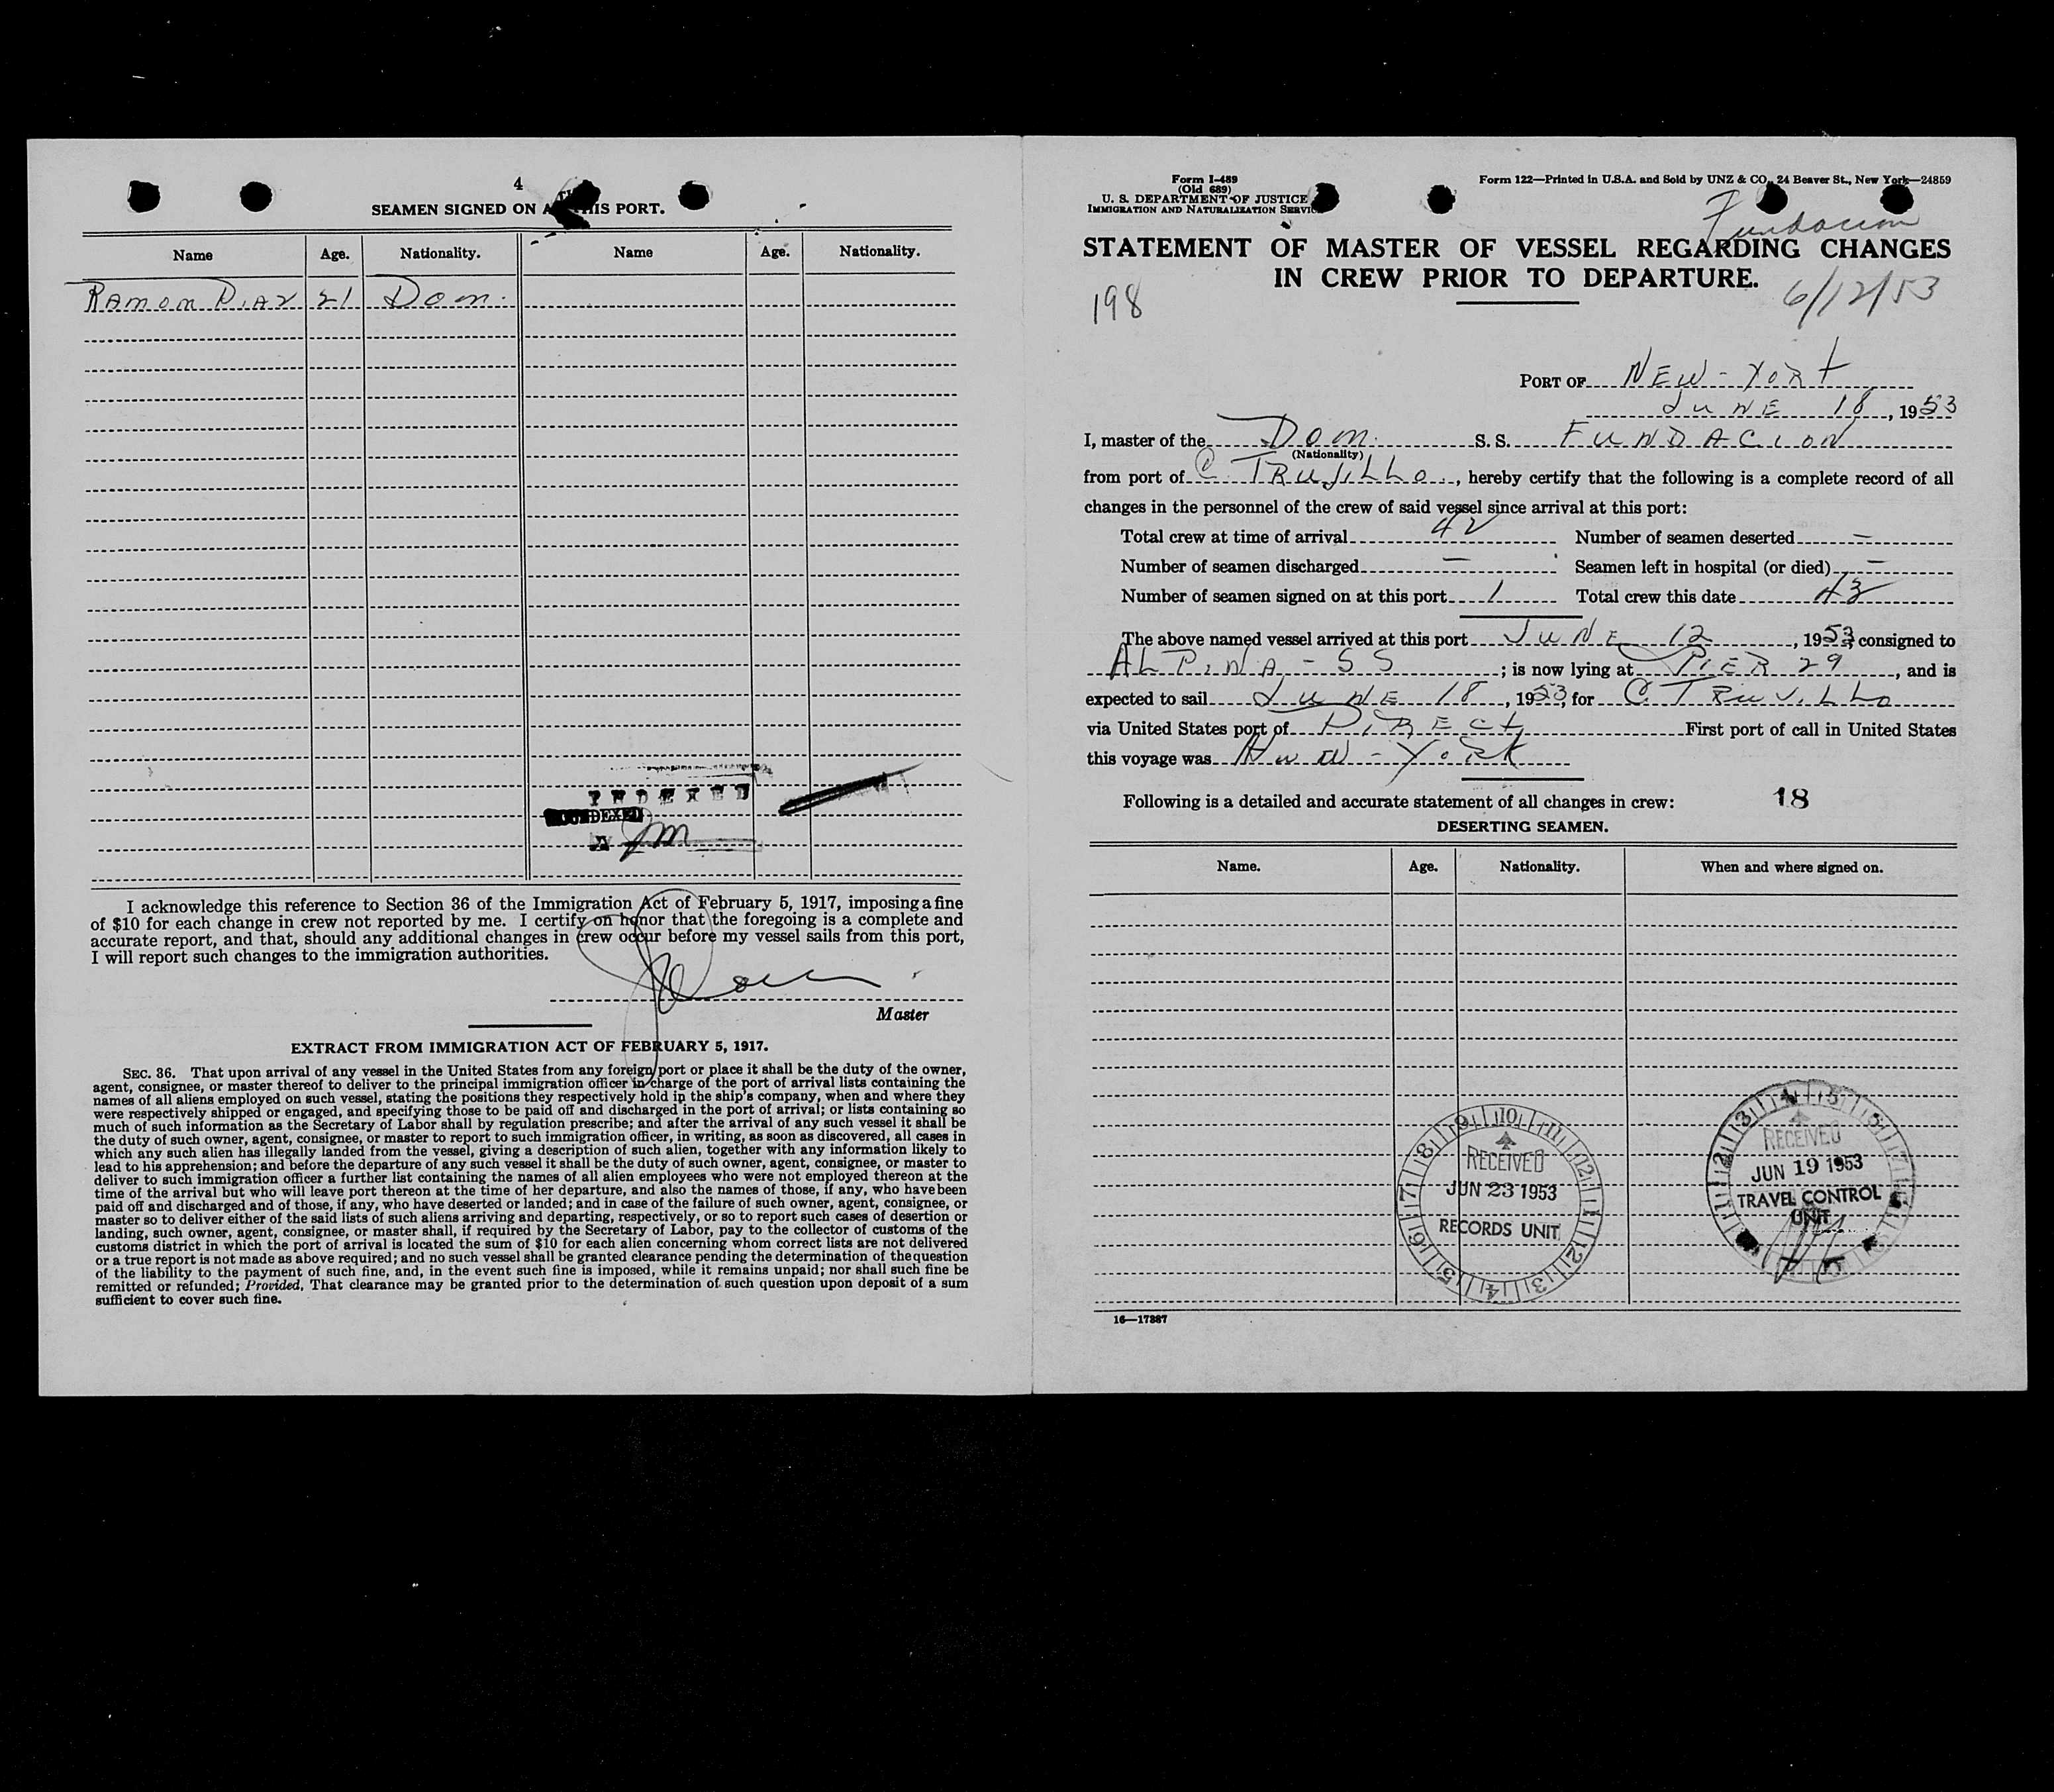 4
SEAMEN SIGNED ON AT THIS PORT.
Name Age. Nationality. Name Age. Nationality.
RAMON DIAZ 21 Dom.
INDEXED
I acknowledge this reference to Section 36 of the Immigration Act of February 5, 1917, imposing a fine
of $10 for each change in crew not reported by me. I certify on honor that the foregoing is a complete and
accurate report, and that, should any additional changes in crew occur before my vessel sails from this port,
I will report such changes to the immigration authorities.
Master
EXTRACT FROM IMMIGRATION ACT OF FEBRUARY 5, 1917.
SEC. 36. That upon arrival of any vessel in the United States from any foreign port or place it shall be the duty of the owner,
agent, consignee, or master thereof to deliver to the principal immigration officer in charge of the port of arrival lists containing the
names of all aliens employed on such vessel, stating the positions they respectively hold in the ship's company, when and where they
were respectively shipped or engaged, and specifying those to be paid off and discharged in the port of arrival; or lists containing so
much of such information as the Secretary of Labor shall by regulation prescribe; and after the arrival of any such vessel it shall be
the duty of such owner, agent, consignee, or master to report to such immigration officer, in writing, as soon as discovered, all cases in
which any such alien has illegally landed from the vessel, giving a description of such alien, together with any information likely to
lead to his apprehension; and before the departure of any such vessel it shall be the duty of such owner, agent, consignee, or master to
deliver to such immigration officer a further list containing the names of all alien employees who were not employed thereon at the
time of the arrival but who will leave port thereon at the time of her departure, and also the names of those, if any, who have been
paid off and discharged and of those, if any, who have deserted or landed; and in case of the failure of such owner, agent, consignee, or
master so to deliver either of the said lists of such aliens arriving and departing, respectively, or so to report such cases of desertion or
landing, such owner, agent, consignee, or master shall, if required by the Secretary of Labor, pay to the collector of customs of the
customs district in which the port of arrival is located the sum of $10 for each alien concerning whom correct lists are not delivered
or a true report is not made as above required; and no such vessel shall be granted clearance pending the determination of the question
of the liability to the payment of such fine, and, in the event such fine is imposed, while it remains unpaid; nor shall such fine be
remitted or refunded; Provided, That clearance may be granted prior to the determination of such question upon deposit of a sum
sufficient to cover such fine.
Form I-489
(Old 689)
U. S. DEPARTMENT OF JUSTICE
IMMIGRATION AND NATURALIZATION SERVICE
Form 122—Printed in U.S.A. and Sold by UNZ & CO., 24 Beaver St., New York—24859
Fundacion
STATEMENT OF MASTER OF VESSEL REGARDING CHANGES
IN CREW PRIOR TO DEPARTURE.
198
6/12/53
PORT OF NEW-YORK
JUNE 18, 1953
I, master of the Dom. S. S. FUNDACION
(Nationality)
from port of C. TRUJILLO, hereby certify that the following is a complete record of all
changes in the personnel of the crew of said vessel since arrival at this port:
Total crew at time of arrival 42 Number of seamen deserted —
Number of seamen discharged — Seamen left in hospital (or died) —
Number of seamen signed on at this port 1 Total crew this date 43
The above named vessel arrived at this port JUNE 12, 1953, consigned to
ALPINA - SS; is now lying at PIER 29, and is
expected to sail JUNE 18, 1953, for C. TRUJILLO
via United States port of DIRECT First port of call in United States
this voyage was NEW-YORK
Following is a detailed and accurate statement of all changes in crew: 18
DESERTING SEAMEN.
Name. Age. Nationality. When and where signed on.
RECEIVED
JUN 23 1953
RECORDS UNIT
RECEIVED
JUN 19 1953
TRAVEL CONTROL
UNIT
16—17887